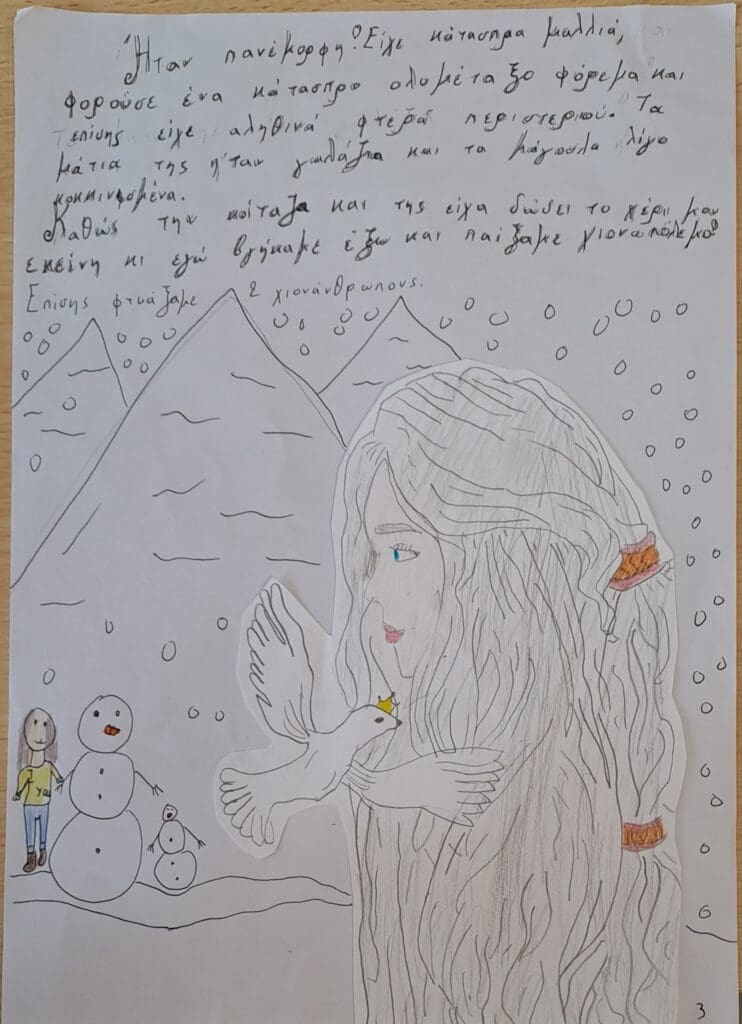 Ήταν πανέμορφη! Είχε κάτασπρα μαλλιά,
φορούσε ένα κάτασπρο ολομέταξο φόρεμα και
επίσης είχε αληθινά φτερά περιστεριού. Τα
μάτια της ήταν γαλάζια και τα μάγουλα λίγο
κοκκινισμένα.
Καθώς την κοίταζα και της είχα δώσει το χέρι μου
εκείνη κι εγώ βγήκαμε έξω και παίξαμε χιονοπόλεμο!
Επίσης φτιάξαμε 2 χιονάνθρωπους.
3